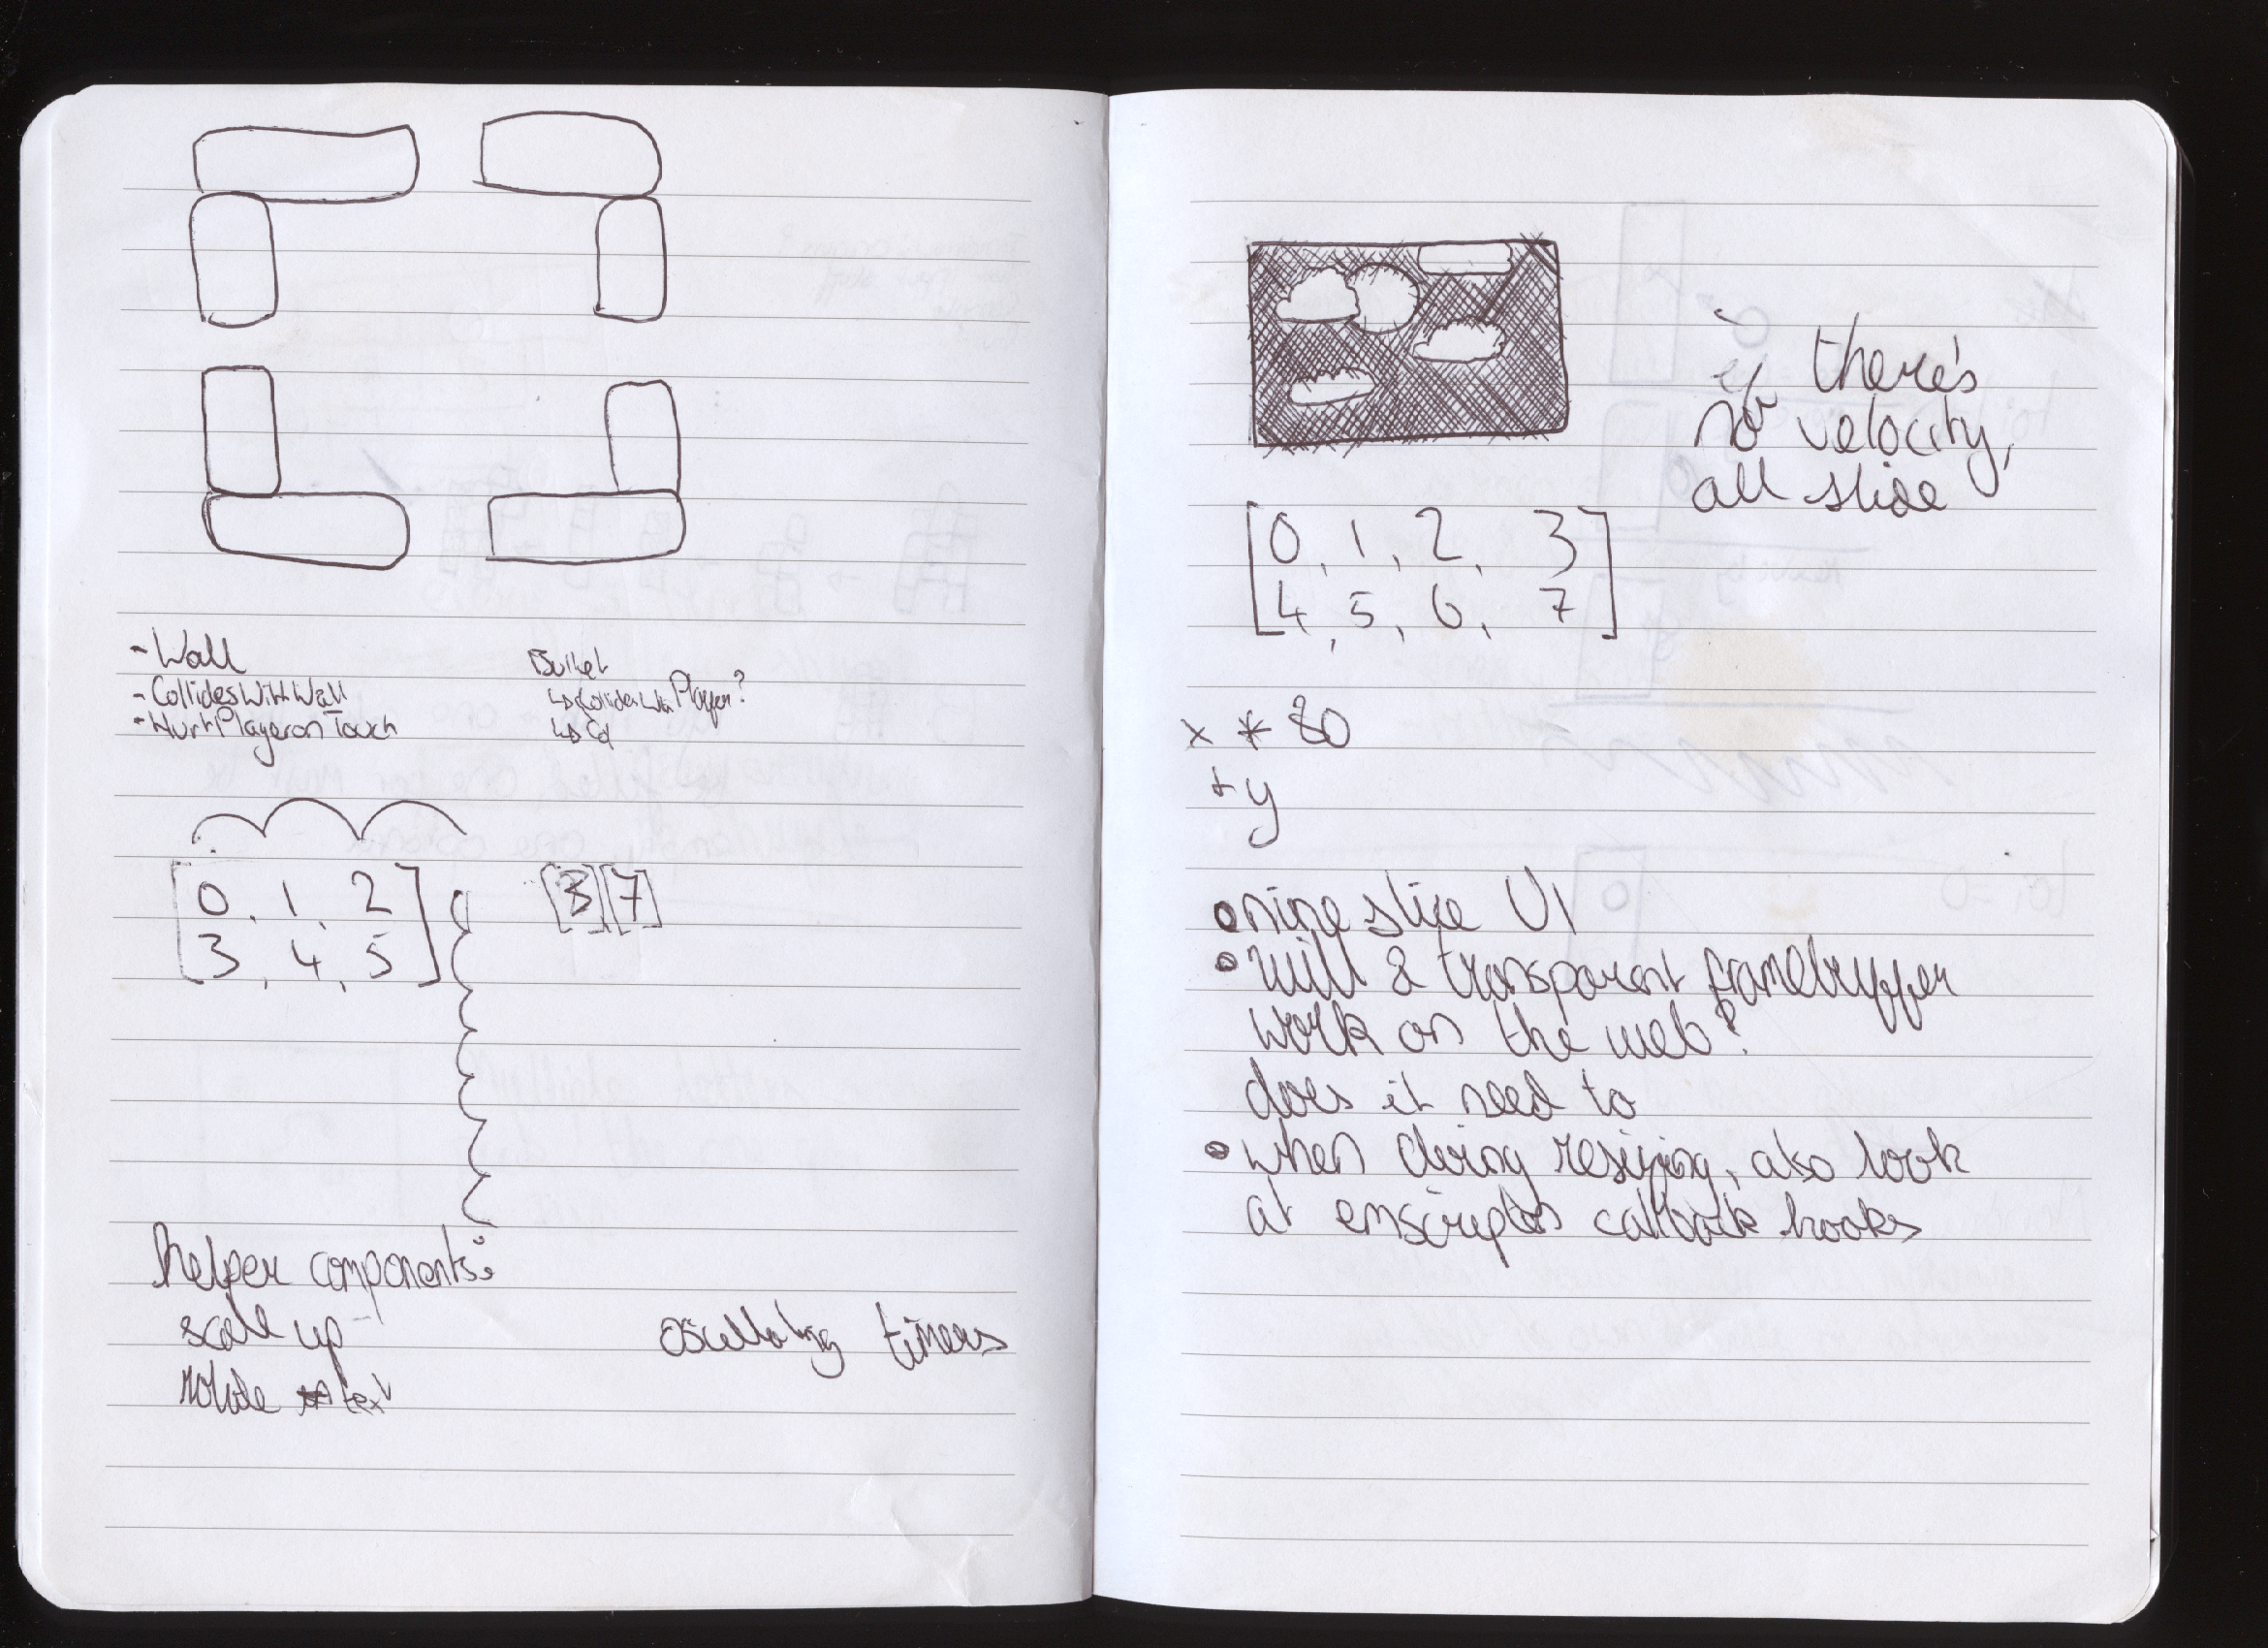 - Wall
- CollidesWithWall
- HurtPlayeronTouch
Bullet
↳ CollidesWith Player?
↳ Col
[0, 1, 2
3, 4, 5]
[3][7]
helper components:
scale up
rotate text
oscillating timers
if there's
no velocity,
all slide
[0, 1, 2, 3
4, 5, 6, 7]
x * 80
+ y
• nine slice UI
• will a transparent framebuffer
work on the web?
does it need to
• when doing resizing, also look
at emscripten callback hooks